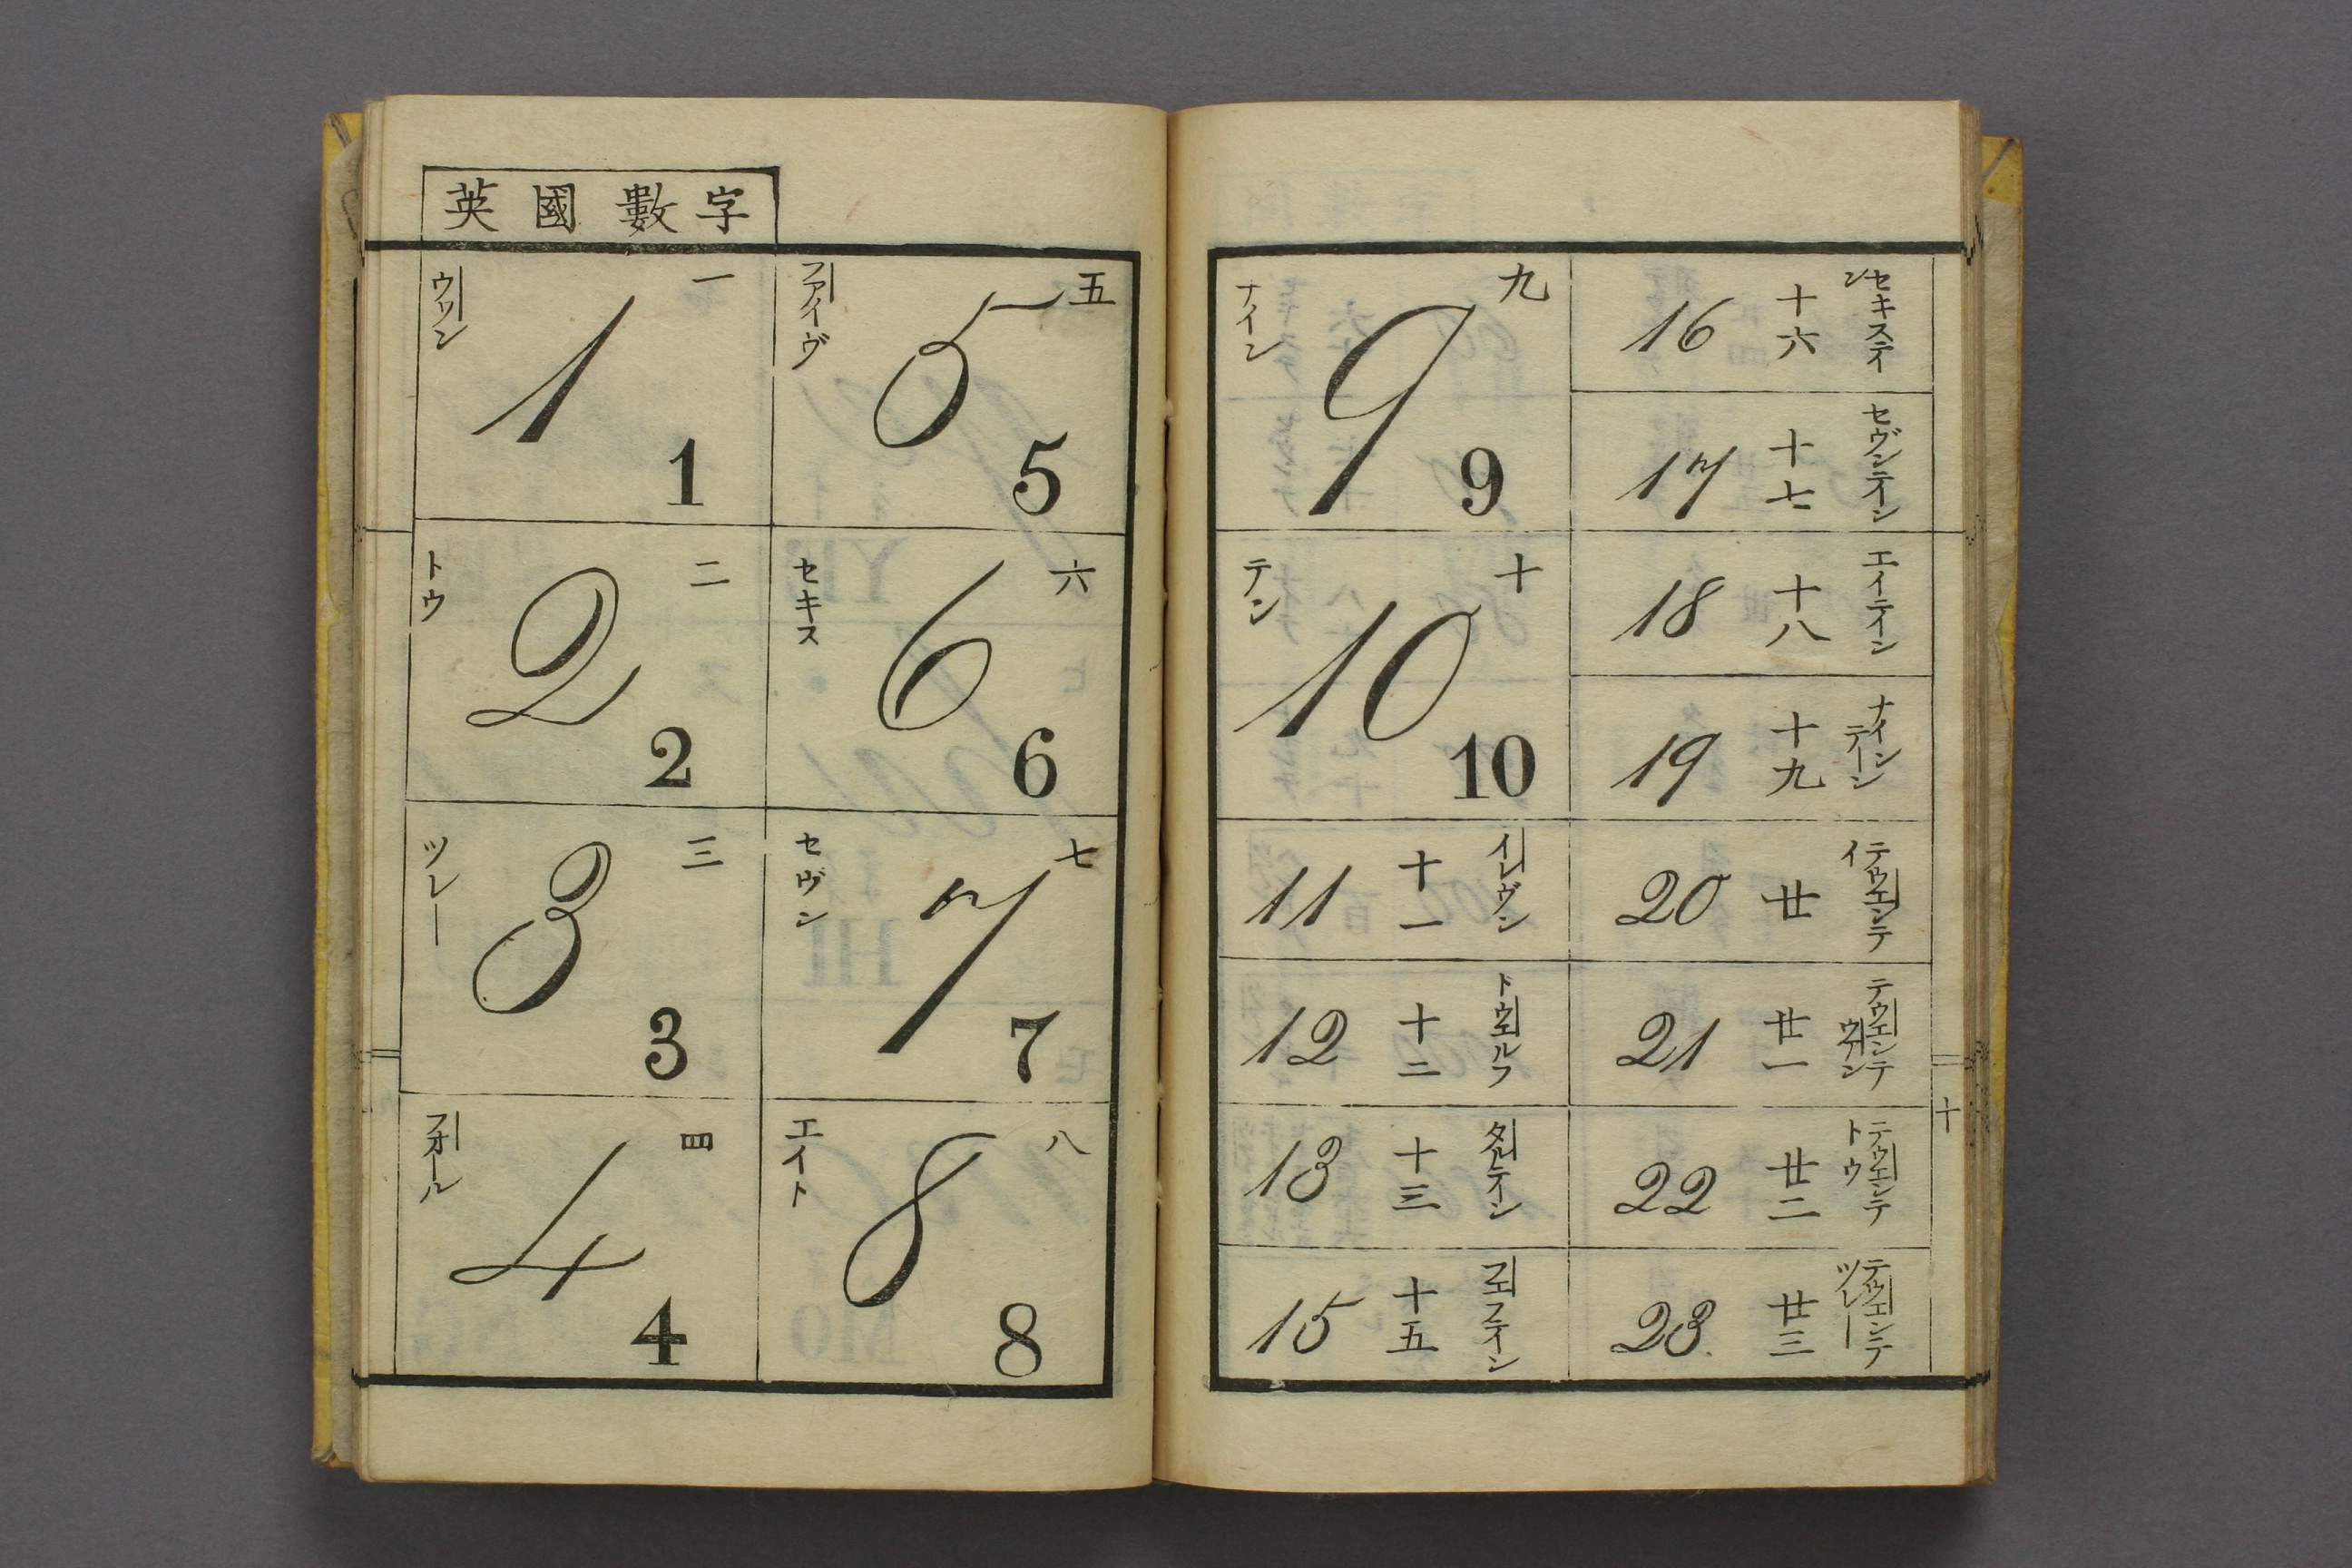 英國數字
一
ウワン
1
1
二
トウ
2
2
三
ツレー
3
3
四
フオール
4
4
五
フアイヴ
5
5
六
セキス
6
6
七
セヴン
7
7
八
エイト
8
8
九
ナイン
9
9
十
テン
10
10
11 十一 イレヴン
12 十二 トウエルフ
13 十三 タルテイン
15 十五 フエフテイン
16 十六 セキステイン
17 十七 セヴンテイン
18 十八 エイテイン
19 十九 ナインテーン
20 廿 テウエンテイ
21 廿一 テウエンテウワン
22 廿二 テウエンテトウ
23. 廿三 テウエンテツレー
十